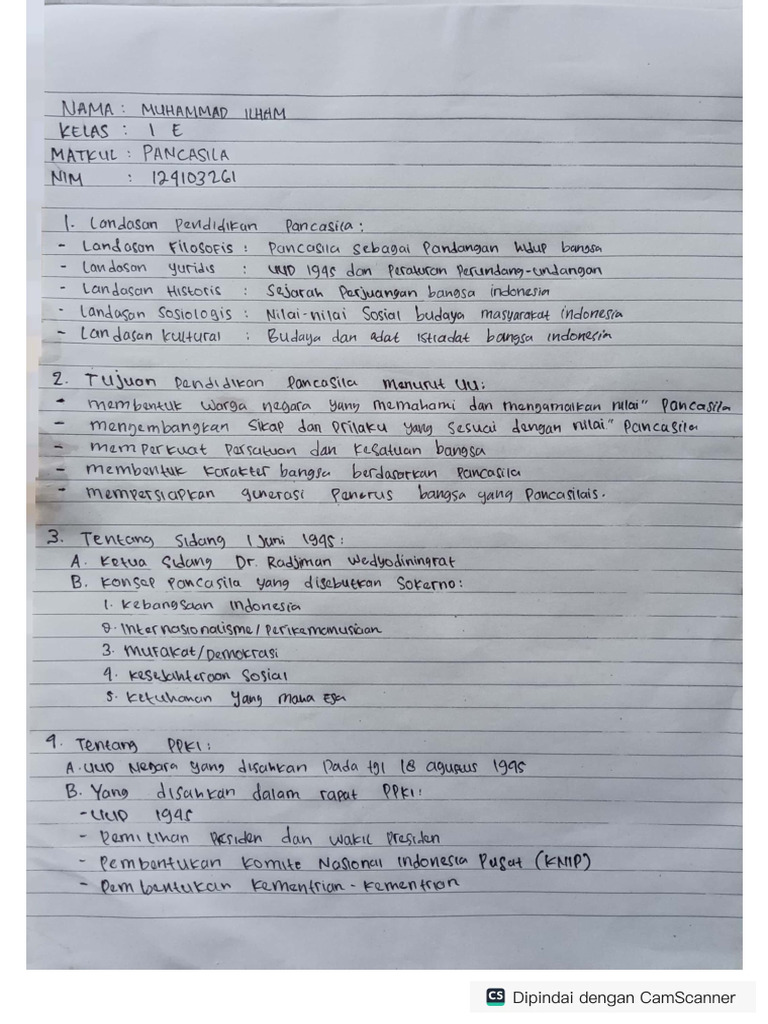 NAMA : MUHAMMAD ILHAM
KELAS : 1 E
MATKUL : PANCASILA
NIM : 129103261
1. Landasan Pendidikan Pancasila :
- Landasan Filosofis : Pancasila sebagai Pandangan hidup bangsa
- Landasan yuridis : UUD 1945 dan Peraturan Perundang-undangan
- Landasan Historis : Sejarah Perjuangan bangsa indonesia
- Landasan Sosiologis : Nilai-nilai Sosial budaya masyarakat indonesia
- Landasan kultural : Budaya dan adat istiadat bangsa indonesia
2. Tujuan Pendidikan Pancasila menurut UU:
- membentuk warga negara yang memahami dan mengamalkan nilai" Pancasila
- mengembangkan Sikap dan Prilaku yang sesuai dengan nilai" Pancasila
- memperkuat Persatuan dan kesatuan bangsa
- membentuk karakter bangsa berdasarkan Pancasila
- mempersiapkan generasi Penerus bangsa yang Pancasilais.
3. Tentang Sidang 1 Juni 1945 :
A. ketua Sidang Dr. Radjiman wedyodiningrat
B. konsep Pancasila yang disebutkan Sokerno :
1. kebangsaan Indonesia
2. Internasionalisme/Perikemanusiaan
3. mufakat/Demokrasi
4. kesejahteraan Sosial
5. ketuhanan yang maha Esa
4. Tentang PPKI :
A. UUD Negara yang disahkan Pada tgl 18 agustus 1945
B. Yang disahkan dalam rapat PPKI :
- UUD 1945
- Pemilihan Presiden dan wakil Presiden
- Pembentukan Komite Nasional Indonesia Pusat (KNIP)
- Pembentukan kementrian - kementrian
CS Dipindai dengan CamScanner